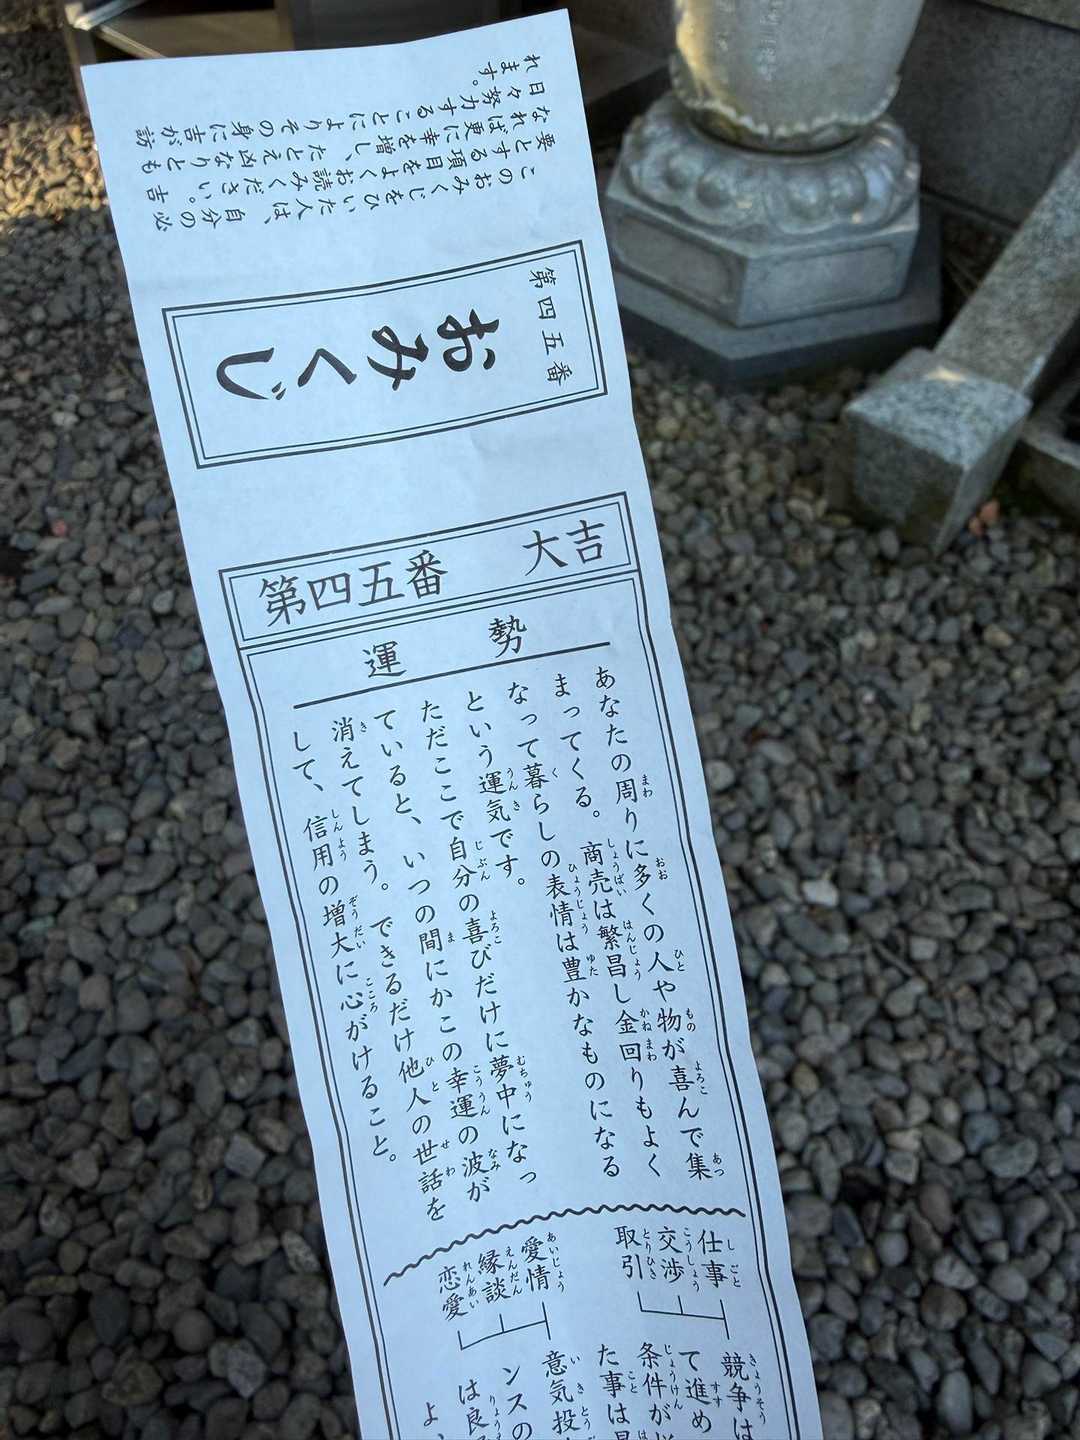 このおみくじをひいた人は、自分の必
要とする項目をよくお読みください。吉
なれば更に幸を増し、たとえ凶なりとも
日々努力することによりその身に吉が訪
れます。
第四五番
おみくじ
第四五番 大吉
運勢
あなたの周りに多くの人や物が喜んで集
まってくる。商売は繁昌し金回りもよく
なって暮らしの表情は豊かなものになる
という運気です。
ただここで自分の喜びだけに夢中になっ
ていると、いつの間にかこの幸運の波が
消えてしまう。できるだけ他人の世話を
して、信用の増大に心がけること。
仕事
交渉
取引
競争は
て進め
条件が
た事は
愛情
縁談
恋愛
意気投
ンスの
は良